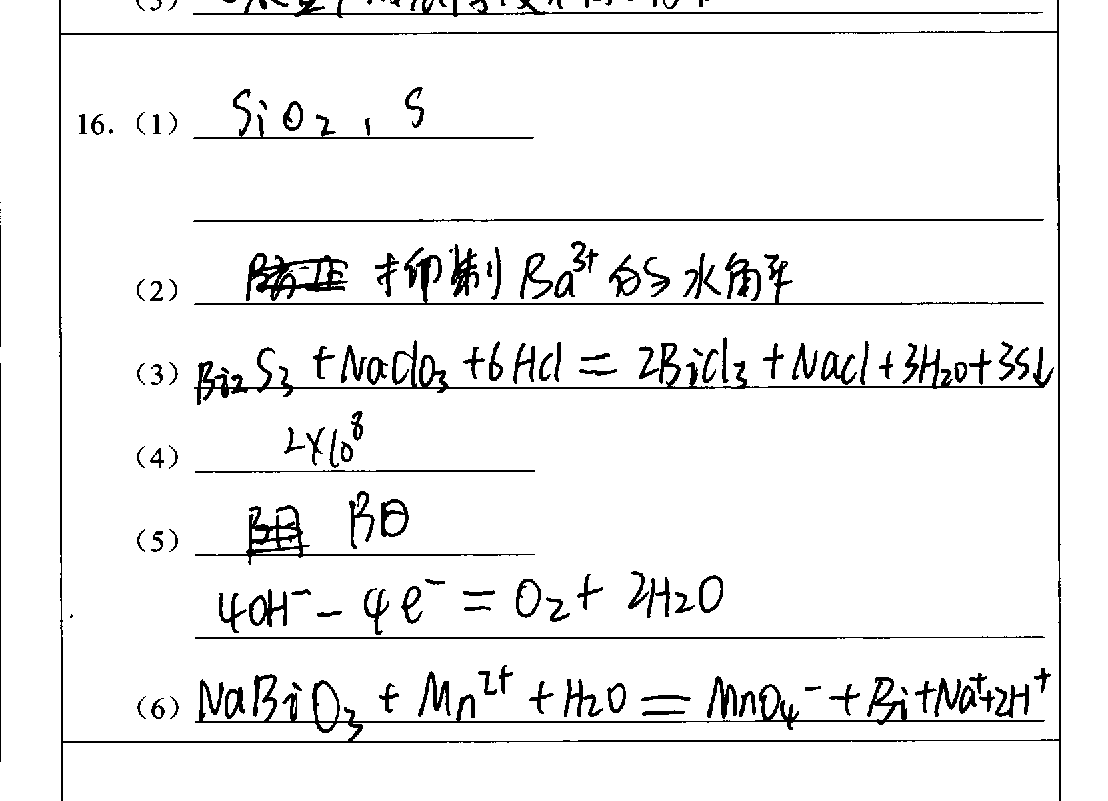 (5)
16. (1) SiO₂, S
(2) 抑制Ba³⁺的水解
(3) Bi₂S₃ + NaClO₃ + 6HCl = 2BiCl₃ + NaCl + 3H₂O + 3S↓
(4) 2×10⁸
(5) 阳
4OH⁻ - 4e⁻ = O₂ + 2H₂O
(6) NaBiO₃ + Mn²⁺ + H₂O = MnO₄⁻ + Bi + Na⁺ + 2H⁺